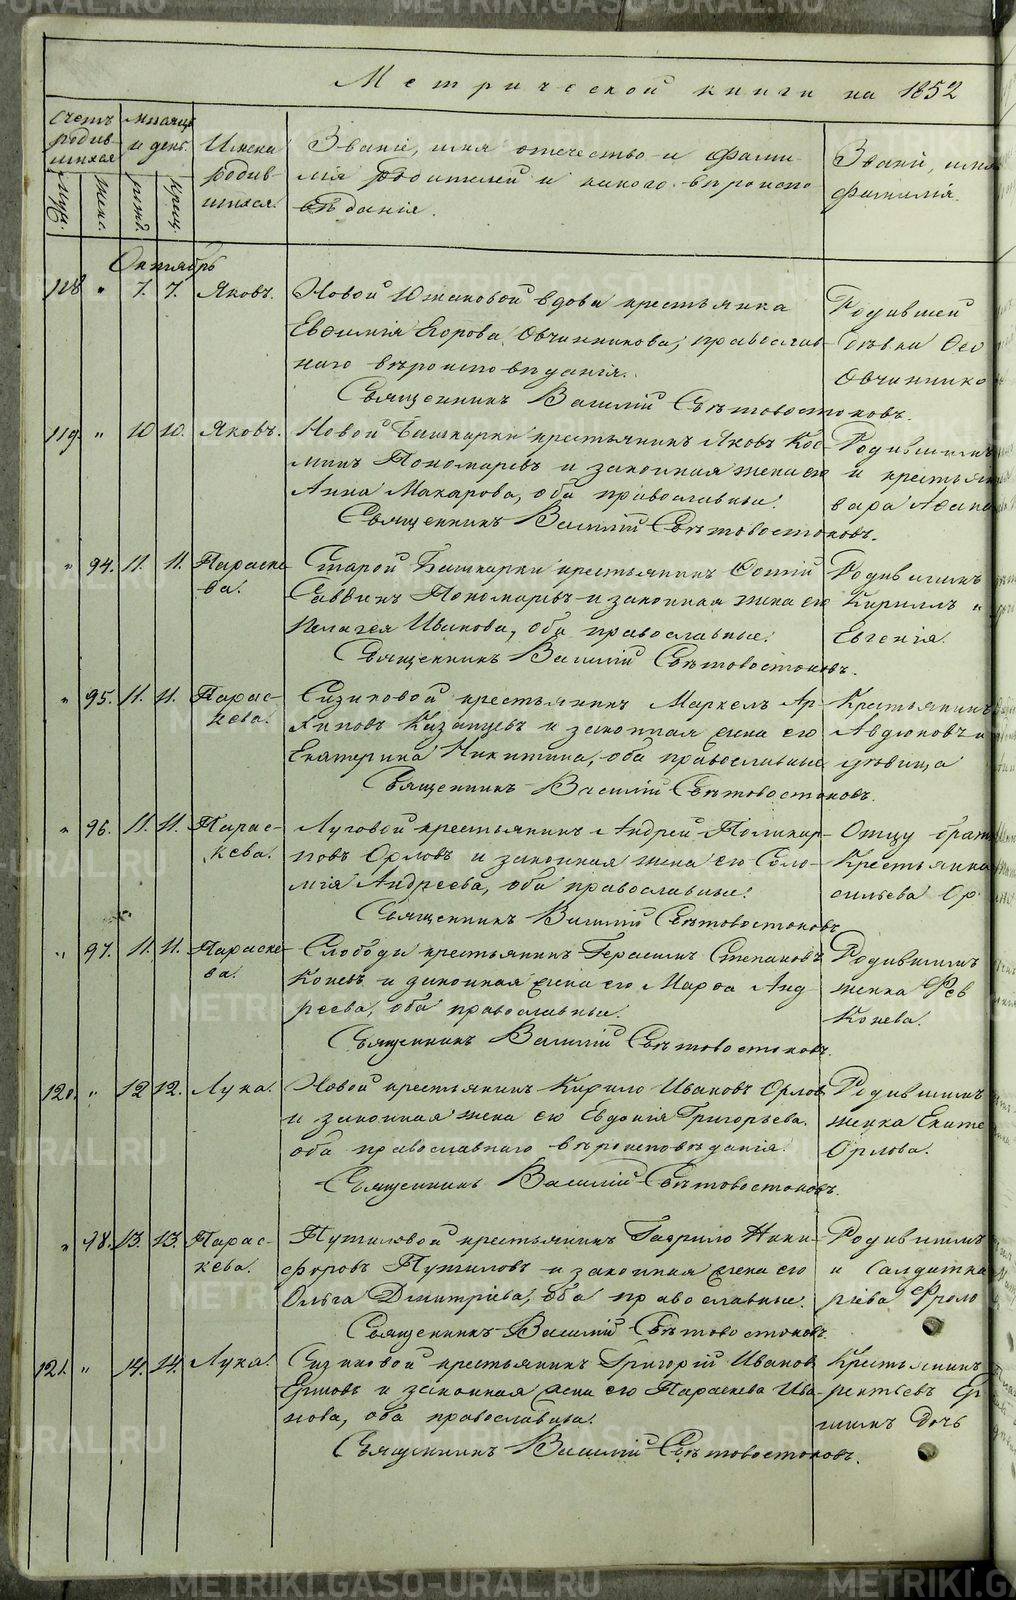 Метрической книги на 1852
Счетъ родившихся
Мѣсяцъ и день
Имена родившихся.
Званіе, имя отечество и фамилія родителей и какого вѣроисповѣданія.
Званіе, имя
фамилія.
Муж. Женс. рожд. крещ.
Октябрь
118 " 7. 7. Яковъ.
Новой Южаковой вдова крестьянка
Евфимія Егорова Овчинникова, православ-
наго вѣроисповѣданія.
Священникъ Василій Свѣтовостоковъ.
Родившей
дѣвка
Овчиннико
119. " 10 10. Яковъ.
Новой Башкарки крестьянинъ Яковъ Кос-
минъ Пономаревъ и законная жена его
Анна Макарова, оба православные.
Священникъ Василій Свѣтовостоковъ.
Родившимъ
и крестьян
вара
" 94. 11. 11. Параске-
ва.
Старой Башкарки крестьянинъ Фотій
Саввинъ Пономаревъ и законная жена его
Пелагея Иванова, оба православные.
Священникъ Василій Свѣтовостоковъ.
Родившимъ
Кириллъ и
Евгенія.
" 95. 11. 11. Парас-
кева.
Сизиковой крестьянинъ Маркелъ Ар-
хиповъ Казанцевъ и законная жена его
Екатерина Никитина, оба православные
Священникъ Василій Свѣтовостоковъ.
Крестьянинъ
Авдюковъ и
дѣвица
" 96. 11. 11. Парас-
кева.
Луговой крестьянинъ Андрей Поликар-
повъ Орловъ и законная жена его Соло-
мія Андреева, оба православные.
Священникъ Василій Свѣтовостоковъ
Отцу брат
Крестьянка
сильева Ор
" 97. 11. 11. Параске-
ва.
Слободы крестьянинъ Герасимъ Степановъ
Коневъ и законная жена его Марфа Анд-
реева, оба православные.
Священникъ Василій Свѣтовостоковъ.
Родившимъ
женка Фев
Конева.
120. " 12 12. Лука.
Новой крестьянинъ Кирило Ивановъ Орлов
и законная жена его Евдокія Григорьева.
оба православнаго вѣроисповѣданія.
Священникъ Василій Свѣтовостоковъ.
Родившимъ
женка Екате
Орлова.
" 98. 13. 13. Парас-
кева.
Путиловой крестьянинъ Гаврило Ники-
форовъ Путиловъ и законная жена его
Ольга Дмитріева, оба православные.
Священникъ Василій Свѣтовостоковъ.
Родившимъ
и Салдатка
ріева Фроло
121. " 14. 14. Лука.
Сизиковой крестьянинъ Григорій Иванов
Ершовъ и законная жена его Параскева Ива-
нова, оба православные.
Священникъ Василій Свѣтовостоковъ.
Крестьянинъ
рентьевъ Ер
шинъ дочь
METRIKI.GASO-URAL.RU